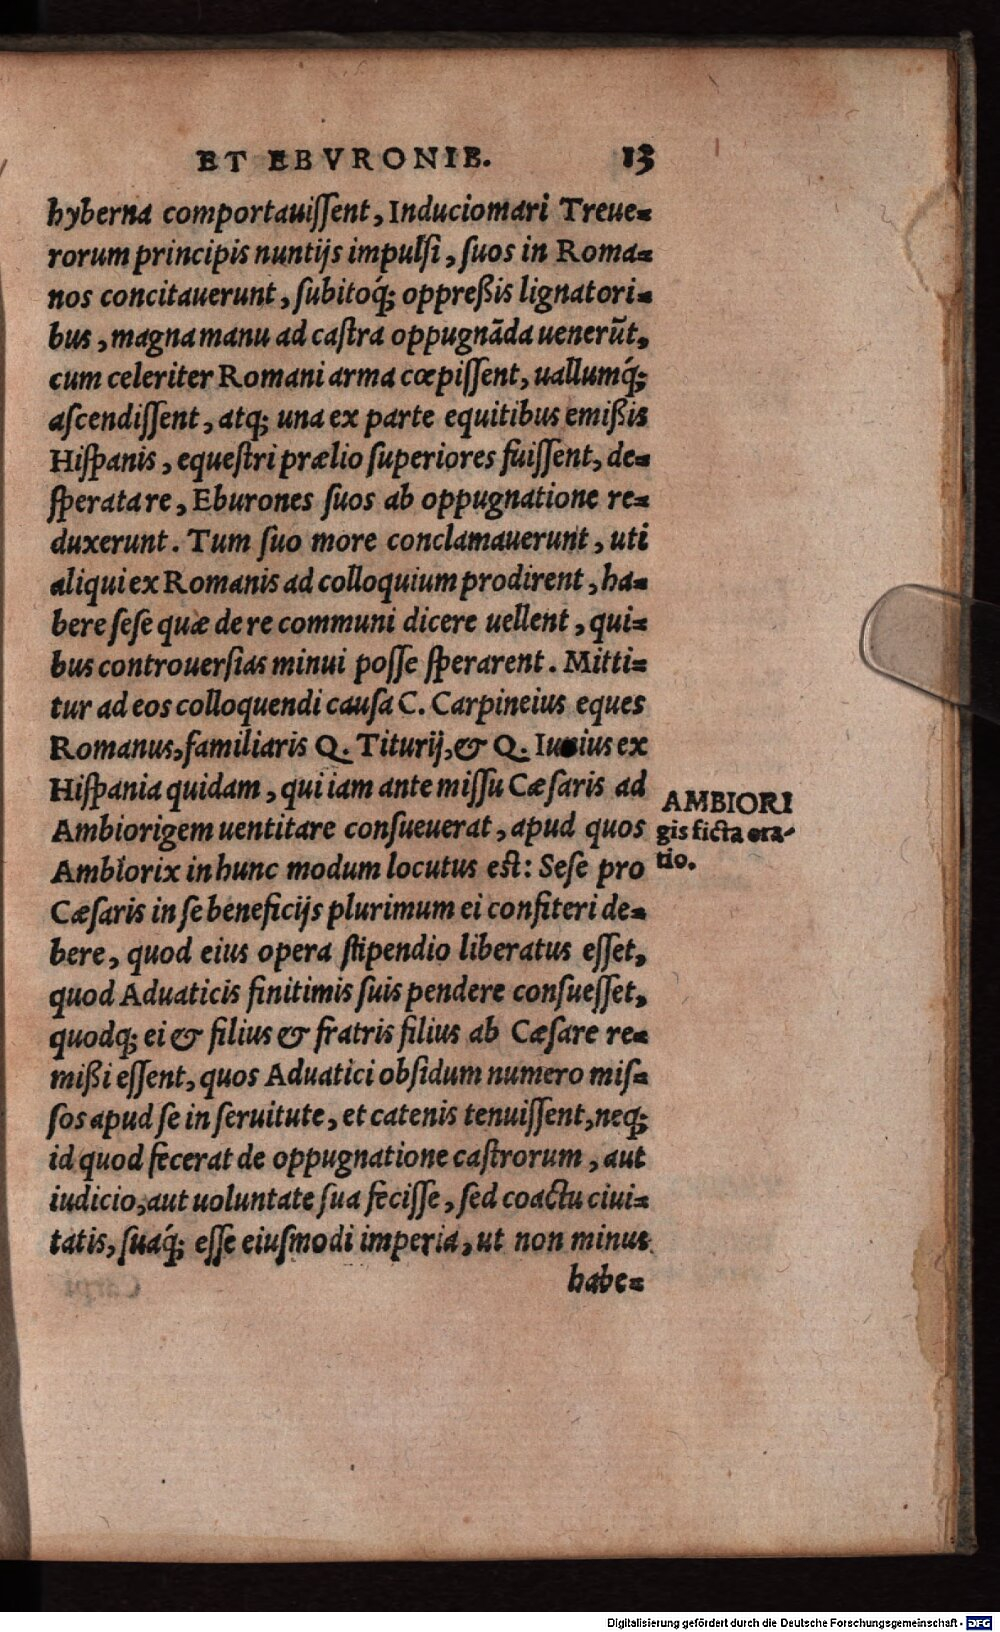 ET EBVRONIB. 13
hyberna comportauiſſent, Induciomari Treue⸗
rorum principis nuntijs impulſi, ſuos in Roma⸗
nos concitauerunt, ſubitoq́; oppreßis lignatori⸗
bus, magna manu ad caſtra oppugnāda uenerūt,
cum celeriter Romani arma cœpiſſent, uallumq́;
aſcendiſſent, atq; una ex parte equitibus emißis
Hiſpanis, equeſtri prælio ſuperiores fuiſſent, de⸗
ſperata re, Eburones ſuos ab oppugnatione re⸗
duxerunt. Tum ſuo more conclamauerunt, uti
aliqui ex Romanis ad colloquium prodirent, ha⸗
bere ſeſe quæ de re communi dicere uellent, qui⸗
bus controuerſias minui poſſe ſperarent. Mitti⸗
tur ad eos colloquendi cauſa C. Carpineius eques
Romanus, familiaris Q. Titurij, & Q. Iunius ex
Hiſpania quidam, qui iam ante miſſu Cæſaris ad
Ambiorigem uentitare conſueuerat, apud quos
Ambiorix in hunc modum locutus eſt: Seſe pro
Cæſaris in ſe beneficijs plurimum ei confiteri de⸗
bere, quod eius opera ſtipendio liberatus eſſet,
quod Aduaticis finitimis ſuis pendere conſueſſet,
quodq; ei & filius & fratris filius ab Cæſare re⸗
mißi eſſent, quos Aduatici obſidum numero miſ⸗
ſos apud ſe in ſeruitute, et catenis tenuiſſent, neq;
id quod fecerat de oppugnatione caſtrorum, aut
iudicio, aut uoluntate ſua feciſſe, ſed coactu ciui⸗
tatis, ſuaq́; eſſe eiuſmodi imperia, ut non minus
habe⸗
AMBIORI
gis ficta ora-
tio.
Digitalisierung gefördert durch die Deutsche Forschungsgemeinschaft - DFG